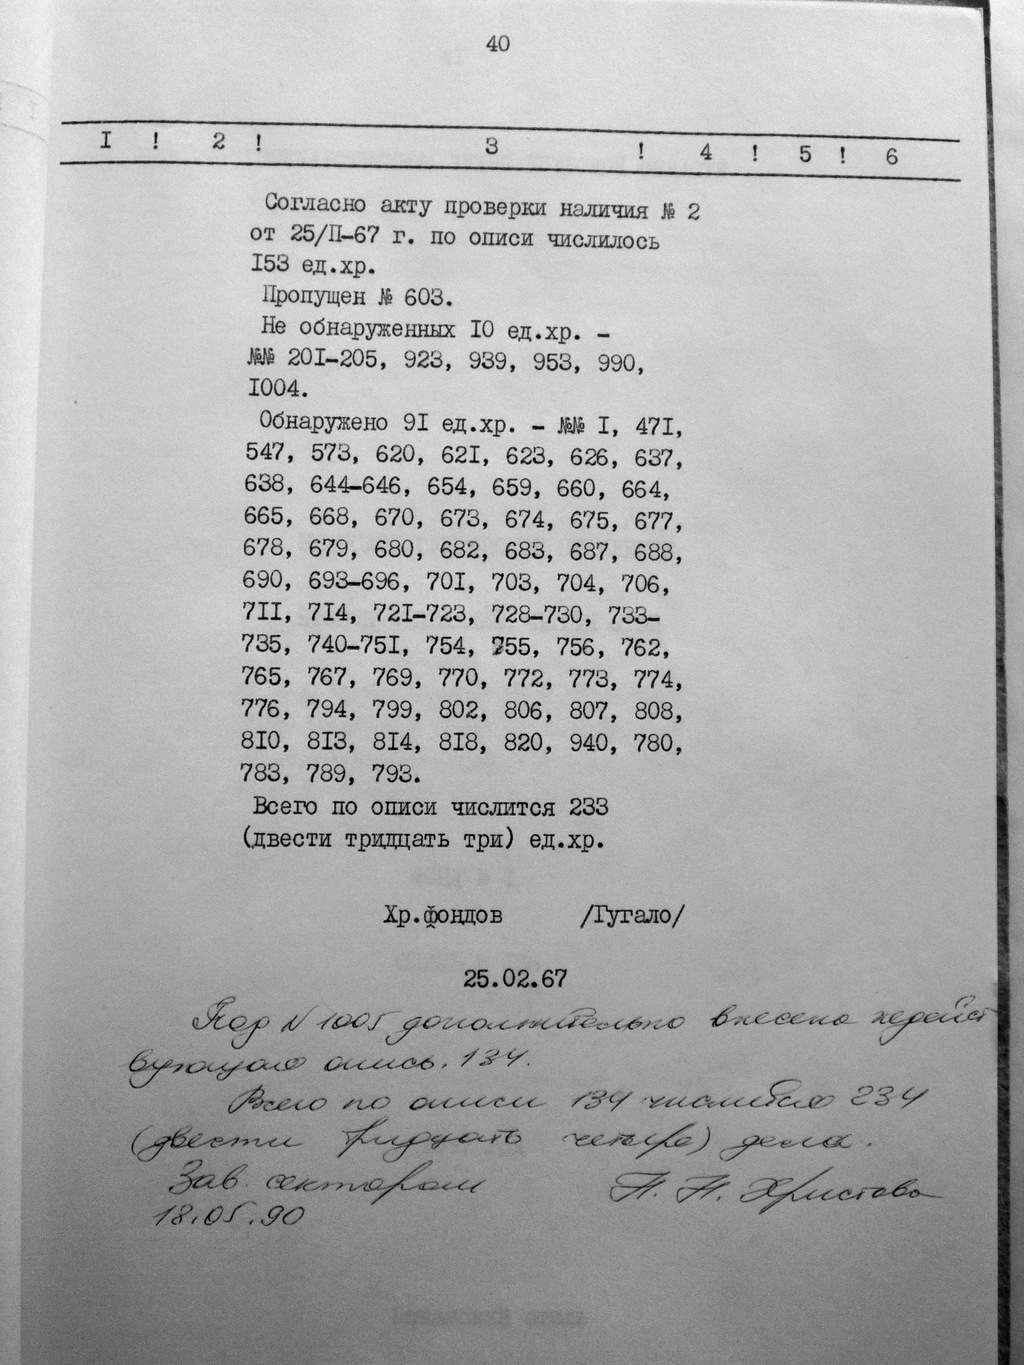 40
I ! 2 ! 3 ! 4 ! 5 ! 6
Согласно акту проверки наличия № 2
от 25/П-67 г. по описи числилось
I53 ед.хр.
Пропущен № 603.
Не обнаруженных IO ед.хр. -
№№ 20I-205, 923, 939, 953, 990,
I004.
Обнаружено 9I ед.хр. - №№ I, 47I,
547, 573, 620, 62I, 623, 626, 637,
638, 644-646, 654, 659, 660, 664,
665, 668, 670, 673, 674, 675, 677,
678, 679, 680, 682, 683, 687, 688,
690, 693-696, 70I, 703, 704, 706,
7II, 7I4, 72I-723, 728-730, 733-
735, 740-75I, 754, 755, 756, 762,
765, 767, 769, 770, 772, 773, 774,
776, 794, 799, 802, 806, 807, 808,
8I0, 8I3, 8I4, 8I8, 820, 940, 780,
783, 789, 793.
Всего по описи числится 233
(двести тридцать три) ед.хр.
Хр.фондов /Гугало/
25.02.67
Под N 1005 дополнительно внесена недейст
вующая опись. 134.
Всего по описи 134 числится 234
(двести тридцать четыре) дела.
Зав. сектором Н. Н. Христова
18.05.90